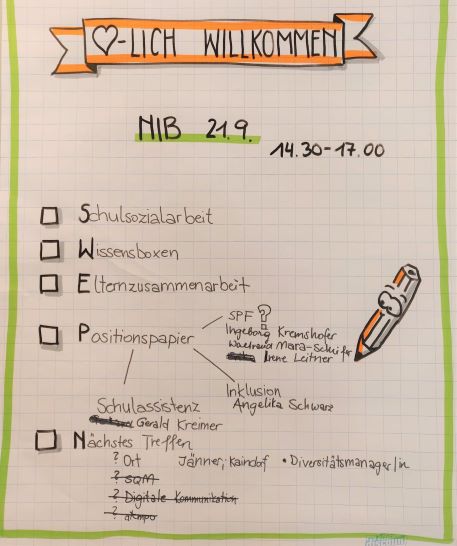 ♡-LICH WILLKOMMEN
NIB 21.9.
14.30-17.00
Schulsozialarbeit
Wissensboxen
Elternzusammenarbeit
SPF ?
Positionspapier
Ingeborg Kremshofer
Waltraud Mara-Schiffer
Irene Leitner
Inklusion
Angelika Schwarz
Schulassistenz
Gerald Kreimer
Nächstes Treffen
? Ort Jänner, Kaindorf • Diversitätsmanager/in
? SQM
? Digitale Kommunikation
? atempo